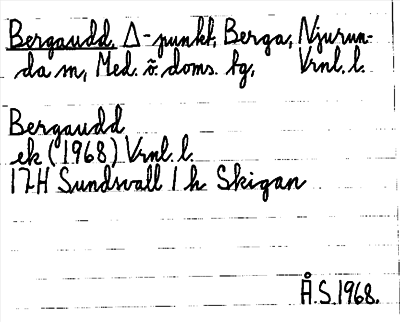 Bergaudd, Δ-punkt, Berga, Njurun-
da sn, Med. ö. doms. hg, Vrnl. l.
Bergaudd
ek (1968) Vrnl. l.
17H Sundsvall 1 h Skigan
Å.S. 1968.